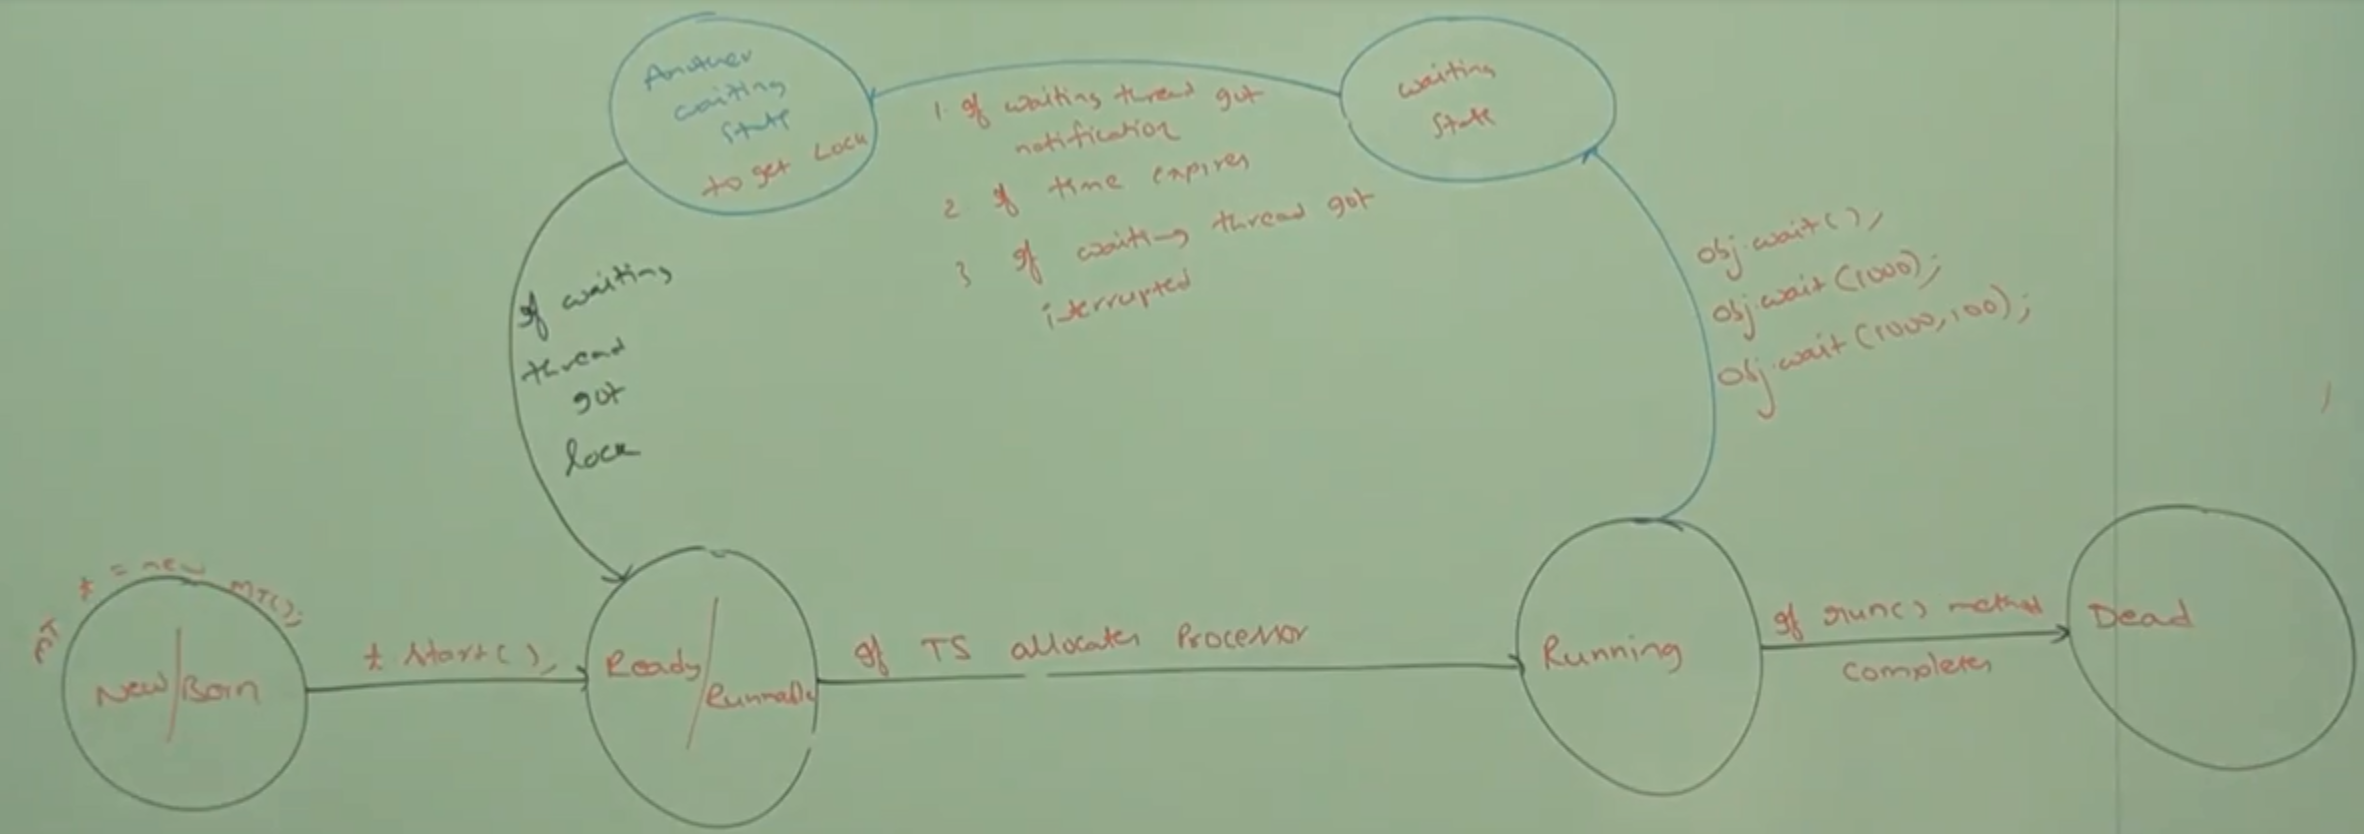 Another
waiting
state
to get Lock
1. If waiting thread got
notification
2 If time expires
3 If waiting thread got
iterrupted
waiting
state
obj.wait();
obj.wait(1000);
obj.wait(1000,100);
If waiting
thread
got
lock
MT t = new MT();
New/Born
t start();
Ready/
Runnable
If TS allocates Processor
Running
If run() method
completes
Dead